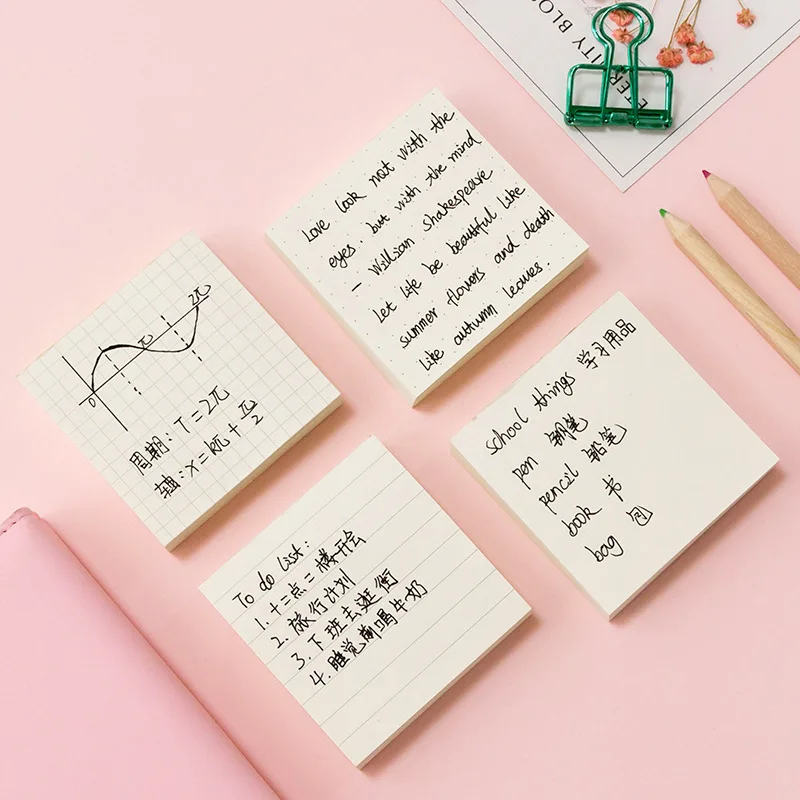 ETERNITY BLO
Love look not with the
eyes, but with the mind
- Willian Shakespeare
Let life be beautiful like
summer flowers and death
like autumn leaves.
0
π
2π
周期: T=2π
轴: x=kπ+π/2
school things 学习用品
pen 钢笔
pencil 铅笔
book 书
bag 包
To do list:
1. 十二点二楼开会
2. 旅行计划
3. 下班去逛街
4. 睡觉前喝牛奶